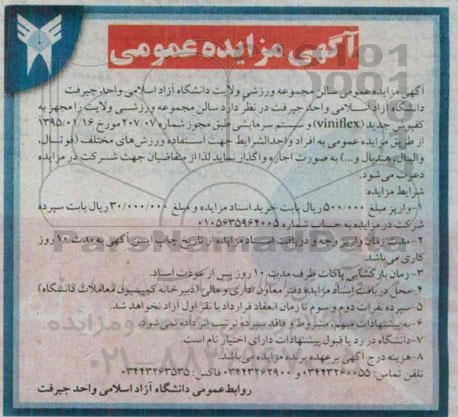 آگهی مزایده عمومی
آگهی مزایده عمومی سالن مجموعه ورزشی ولایت دانشگاه آزاد اسلامی واحد جیرفت
دانشگاه آزاد اسلامی واحد جیرفت در نظر دارد سالن مجموعه ورزشی ولایت را مجهز به
کفپوش جدید (viniflex) و سیستم سرمایشی طبق مجوز شماره ۲۰۷/۰۷ مورخ ۱۳۹۵/۰۱/۱۶
از طریق مزایده عمومی به افراد واجد الشرایط جهت استفاده ورزش های مختلف (فوتسال،
والیبال، هندبال و...) به صورت اجاره واگذار نماید لذا از متقاضیان جهت شرکت در مزایده
دعوت می شود.
شرایط مزایده:
۱-واریز مبلغ ۵۰۰/۰۰۰ ریال بابت خرید اسناد مزایده و مبلغ ۳۰/۰۰۰/۰۰۰ ریال بابت سپرده
شرکت در مزایده به حساب شماره ۰۱۰۵۶۳۵۹۶۴۰۰۵
۲-مدت زمان واریز وجه و دریافت اسناد مزایده از تاریخ چاپ این آگهی به مدت ۱۰ روز
کاری می باشد.
۳- زمان بازگشایی پاکات ظرف مدت ۱۰ روز پس از عودت اسناد.
۴-محل دریافت اسناد مزایده دفتر معاون اداری و مالی (دبیرخانه کمیسیون معاملات دانشگاه)
۵-سپرده نفرات دوم و سوم تا زمان انعقاد قرارداد با نفر اول آزاد نخواهد شد.
۶-به پیشنهادات مبهم، مشروط و فاقد سپرده ترتیب اثر داده نمی شود.
۷-دانشگاه در رد یا قبول پیشنهادات دارای اختیار تام است.
۸-هزینه درج آگهی بر عهده برنده مزایده می باشد.
تلفن تماس: ۰۳۴۴۳۲۶۰۰۵۵ و ۰۳۴۴۳۲۶۲۹۰۰ فاکس: ۰۳۴۴۳۲۶۳۵۳۵
روابط عمومی دانشگاه آزاد اسلامی واحد جیرفت
ParsNamadData